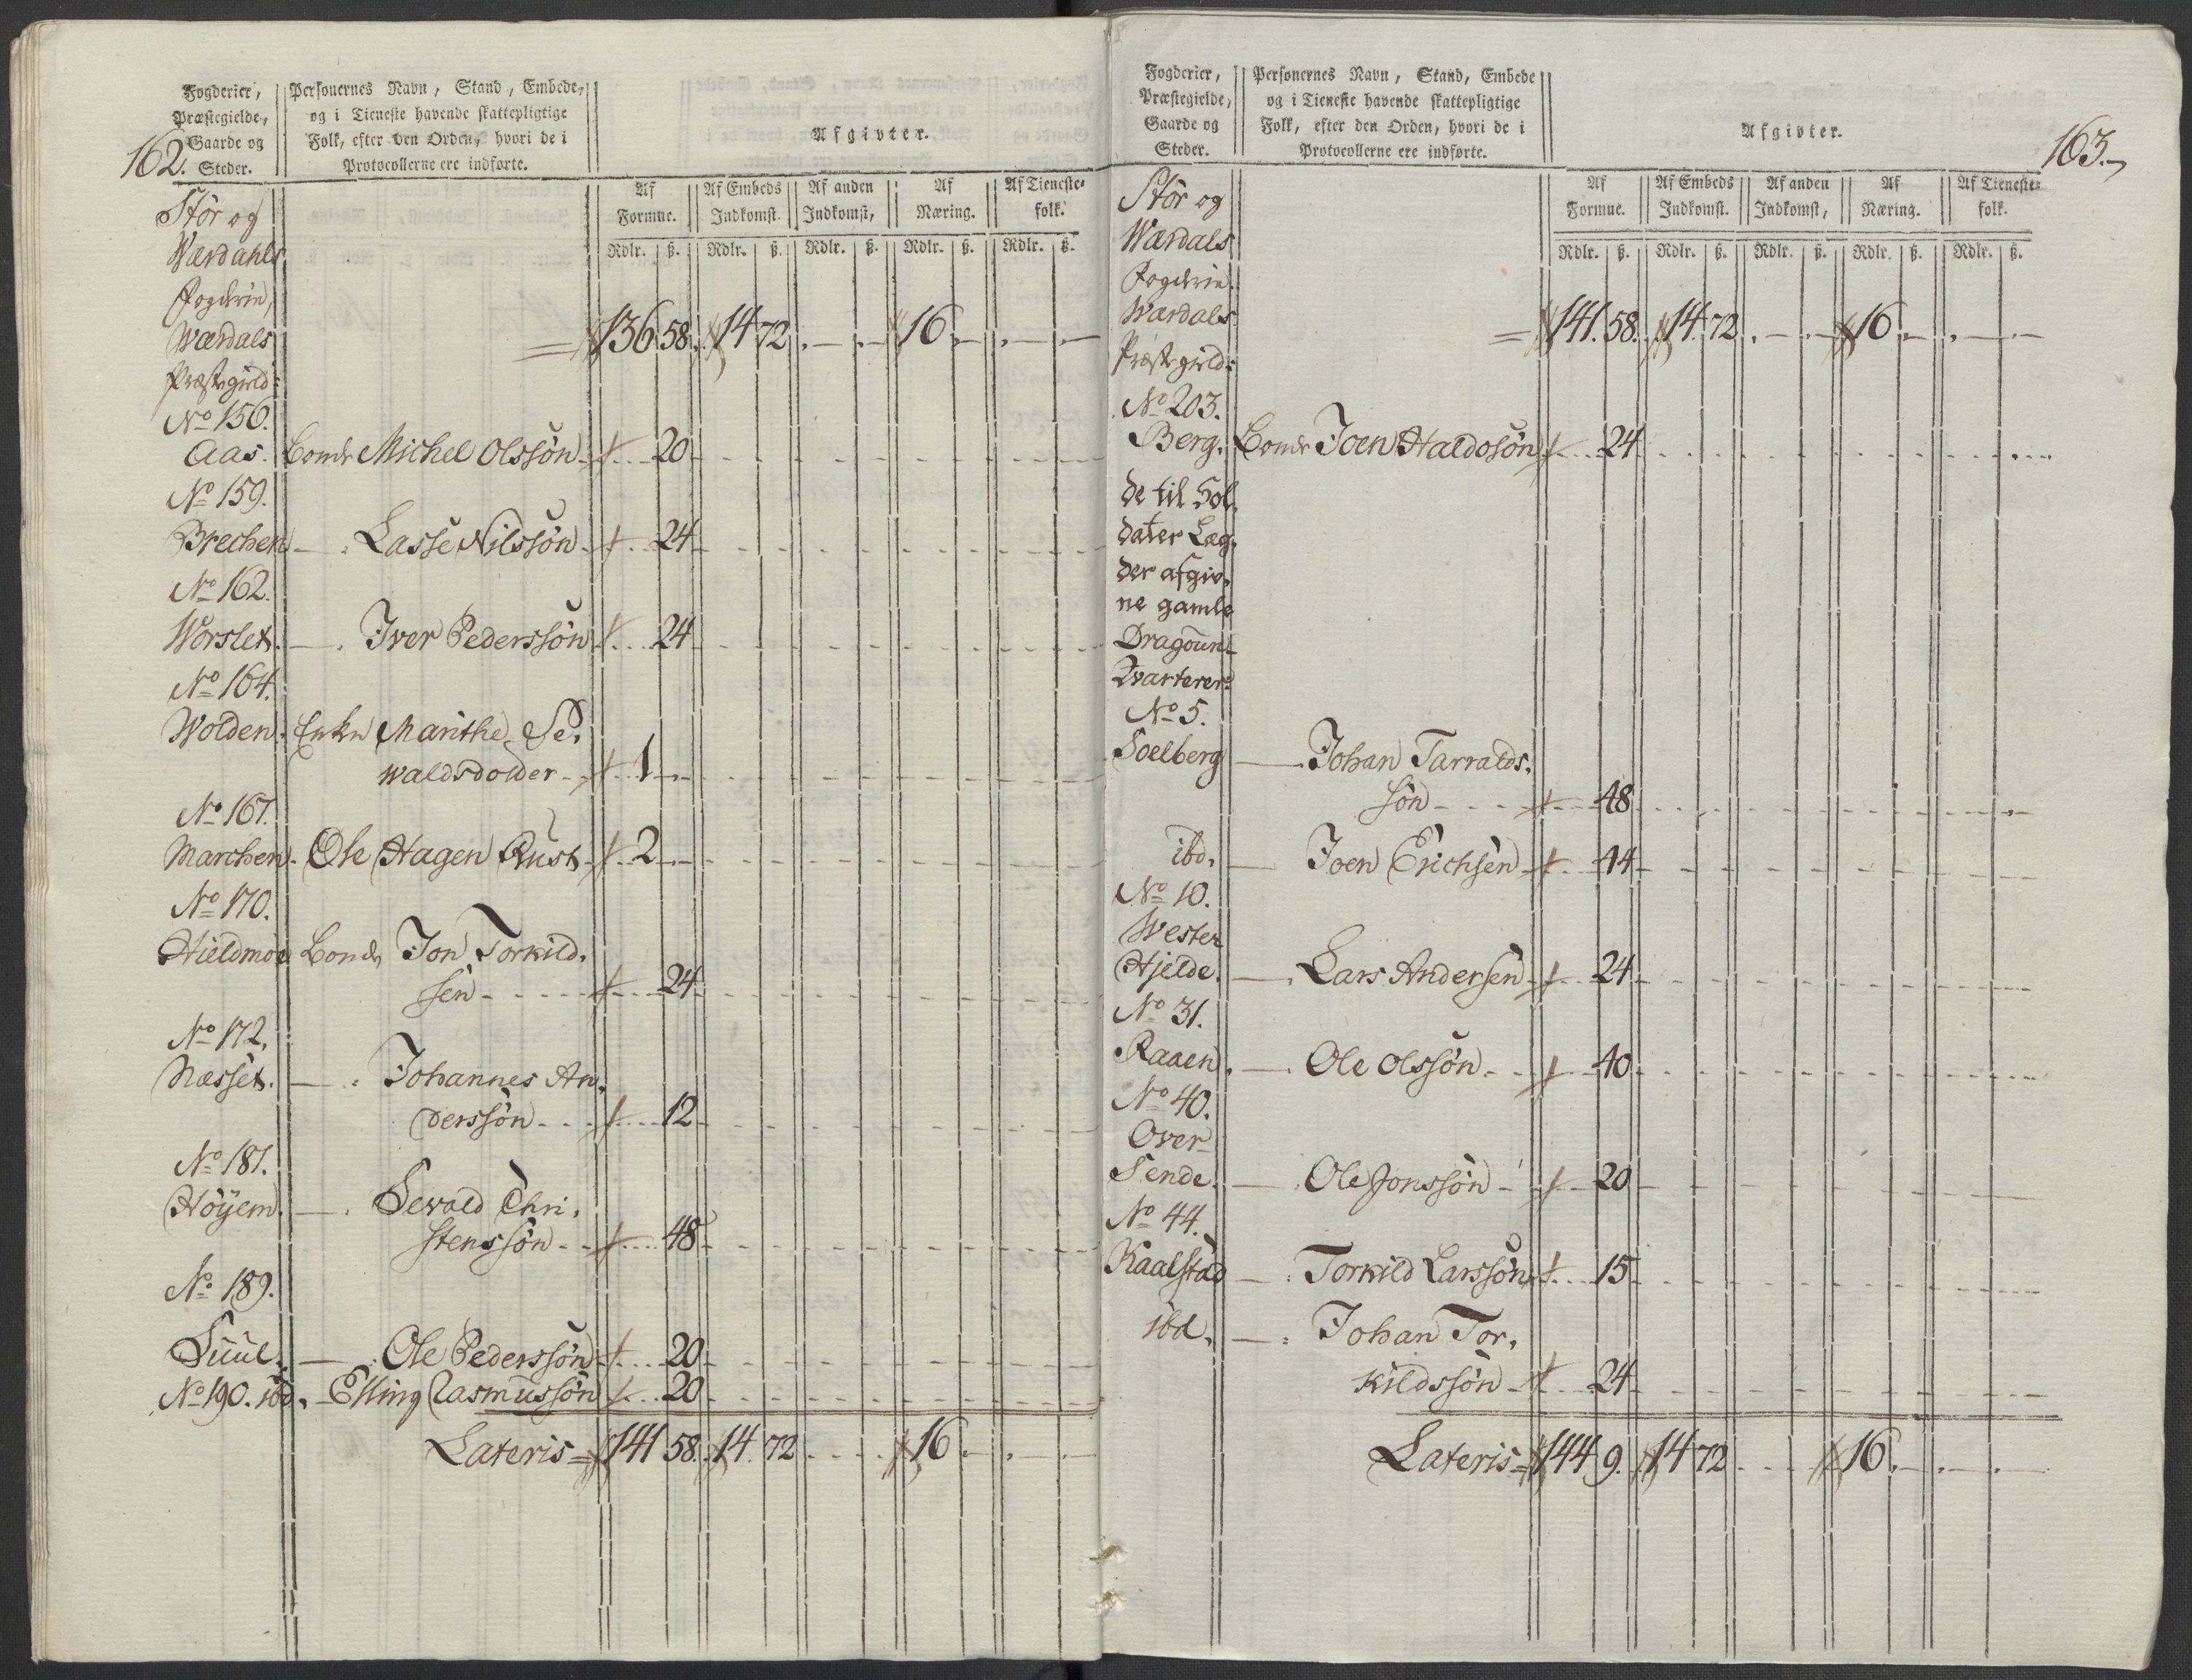 162.
Fogderier,
Præstegielde,
Gaarde og
Steder.
Personernes Navn, Stand, Embede,
og i Tieneste havende skattepligtige
Folk, efter den Orden, hvori de i
Protocollerne ere indførte.
Afgivter.
Af Formue. Af Embeds Indkomst. Af anden Indkomst, Af Næring. Af Tieneste-folk.
Rdlr. ß. Rdlr. ß. Rdlr. ß. Rdlr. ß. Rdlr. ß.
Stör og
Værdahls
Fogderie,
Wærdals
Præstegield:
136 58. 14 72 16
No 156.
Aas. Bonde Michel Olssøn 20
No 159.
Brechen Lasse Nilssøn 24
No 162.
Worslet. Iver Pederssøn 24
No 164.
Wolden. Enke Marithe Se,
waldsdotter 1
No 167.
Marchen. Ole Hagen Rust 2
No 170.
Hieldmoe Bonde Jon Torkild,
sen 24
No 172.
Næsset. Johannes An,
derssøn 12
No 181.
Høyem. Sevald Chri,
stenssøn 48
No 189.
Suul. Ole Pederssøn 20
No 190. ibd. Elling Rasmussøn 20
Lateris 141 58. 14. 72 16
163.
Fogderier,
Præstegielde,
Gaarde og
Steder.
Personernes Navn, Stand, Embede
og i Tieneste havende skattepligtige
Folk, efter den Orden, hvori de i
Protocollerne ere indførte.
Afgivter.
Af Formue. Af Embeds Indkomst. Af anden Indkomst, Af Næring. Af Tieneste-folk.
Rdlr. ß. Rdlr. ß. Rdlr. ß. Rdlr. ß. Rdlr. ß.
Stör og
Wærdals
Fogderie.
Wærdals
Præstegield:
141. 58. 14. 72 16
No 203.
Berg. Bonde Joen Haldosøn 24
de til Sol,
dater Læg,
der afgiv,
ne gamle
Dragoun-
Qvarterer:
No 5.
Soelberg Johan Tarralds,
søn 48
ibd. Joen Erichsen 44
No 10.
Wester
Hjelde. Lars Andersen 24
No 31.
Raaen. Ole Olssøn 40
No 40.
Over-
Sende. Ole Jonssøn 20
No 44.
Kaalstad Torkild Larssøn 15
ibd. Johan Tor,
kildssøn 24
Lateris 144 9. 14 72 16